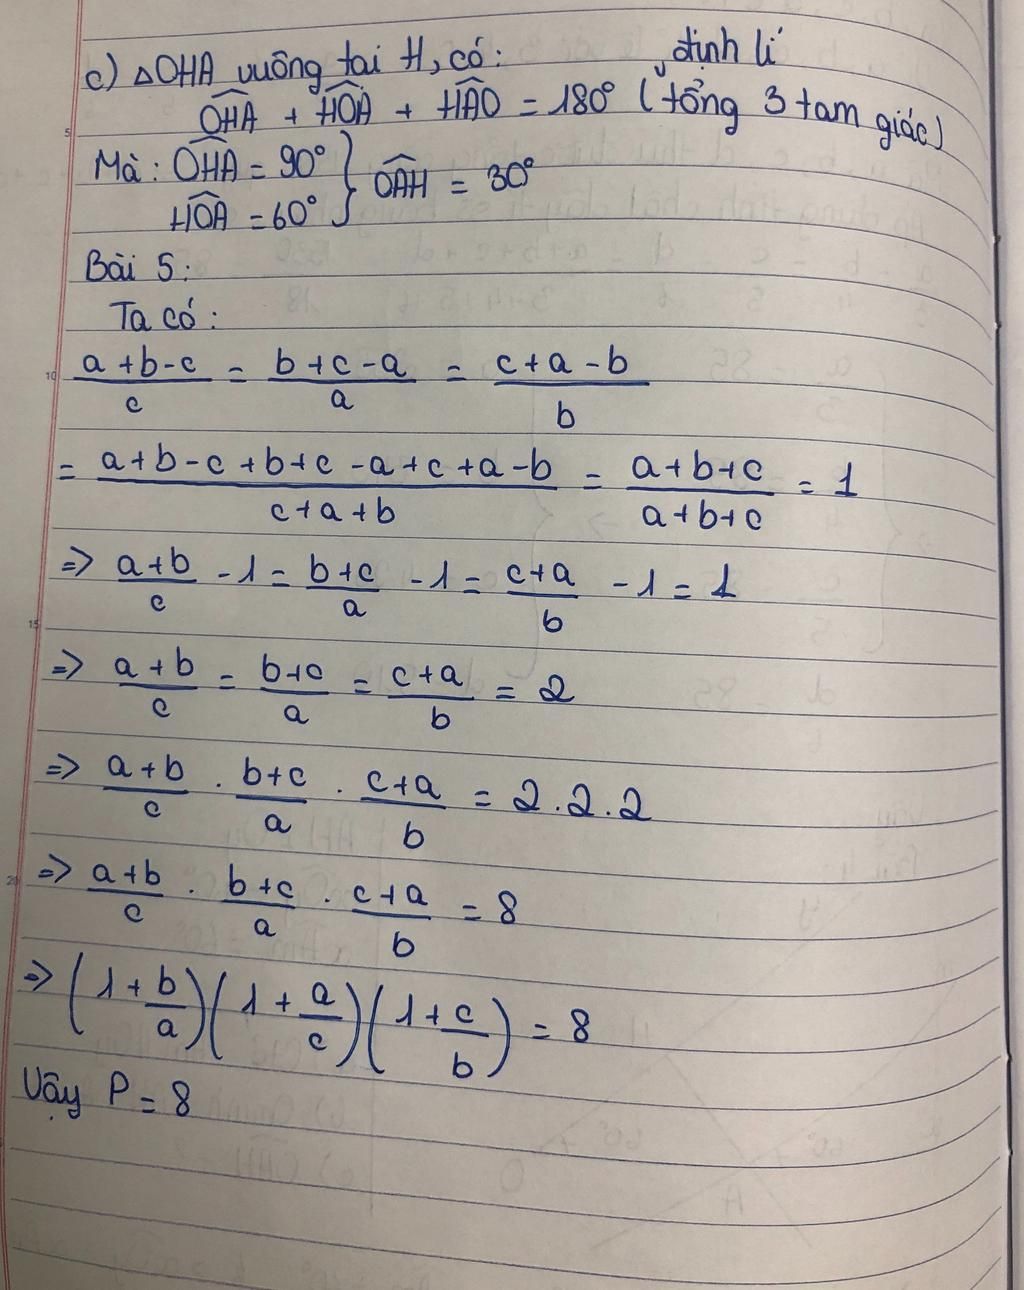 c) △OHA vuông tại H, có:
, định lí
OHA + HOA + HAO = 180° (tổng 3 tam giác)
Mà: OHA = 90° } OAH = 30°
HOA = 60°
Bài 5:
Ta có:
(a+b-c)/c = (b+c-a)/a = (c+a-b)/b
= (a+b-c+b+c-a+c+a-b)/(c+a+b) = (a+b+c)/(a+b+c) = 1
=> (a+b)/c - 1 = (b+c)/a - 1 = (c+a)/b - 1 = 1
=> (a+b)/c = (b+c)/a = (c+a)/b = 2
=> (a+b)/c . (b+c)/a . (c+a)/b = 2.2.2
=> (a+b)/c . (b+c)/a . (c+a)/b = 8
=> (1 + b/a)(1 + a/c)(1 + c/b) = 8
Vậy P = 8